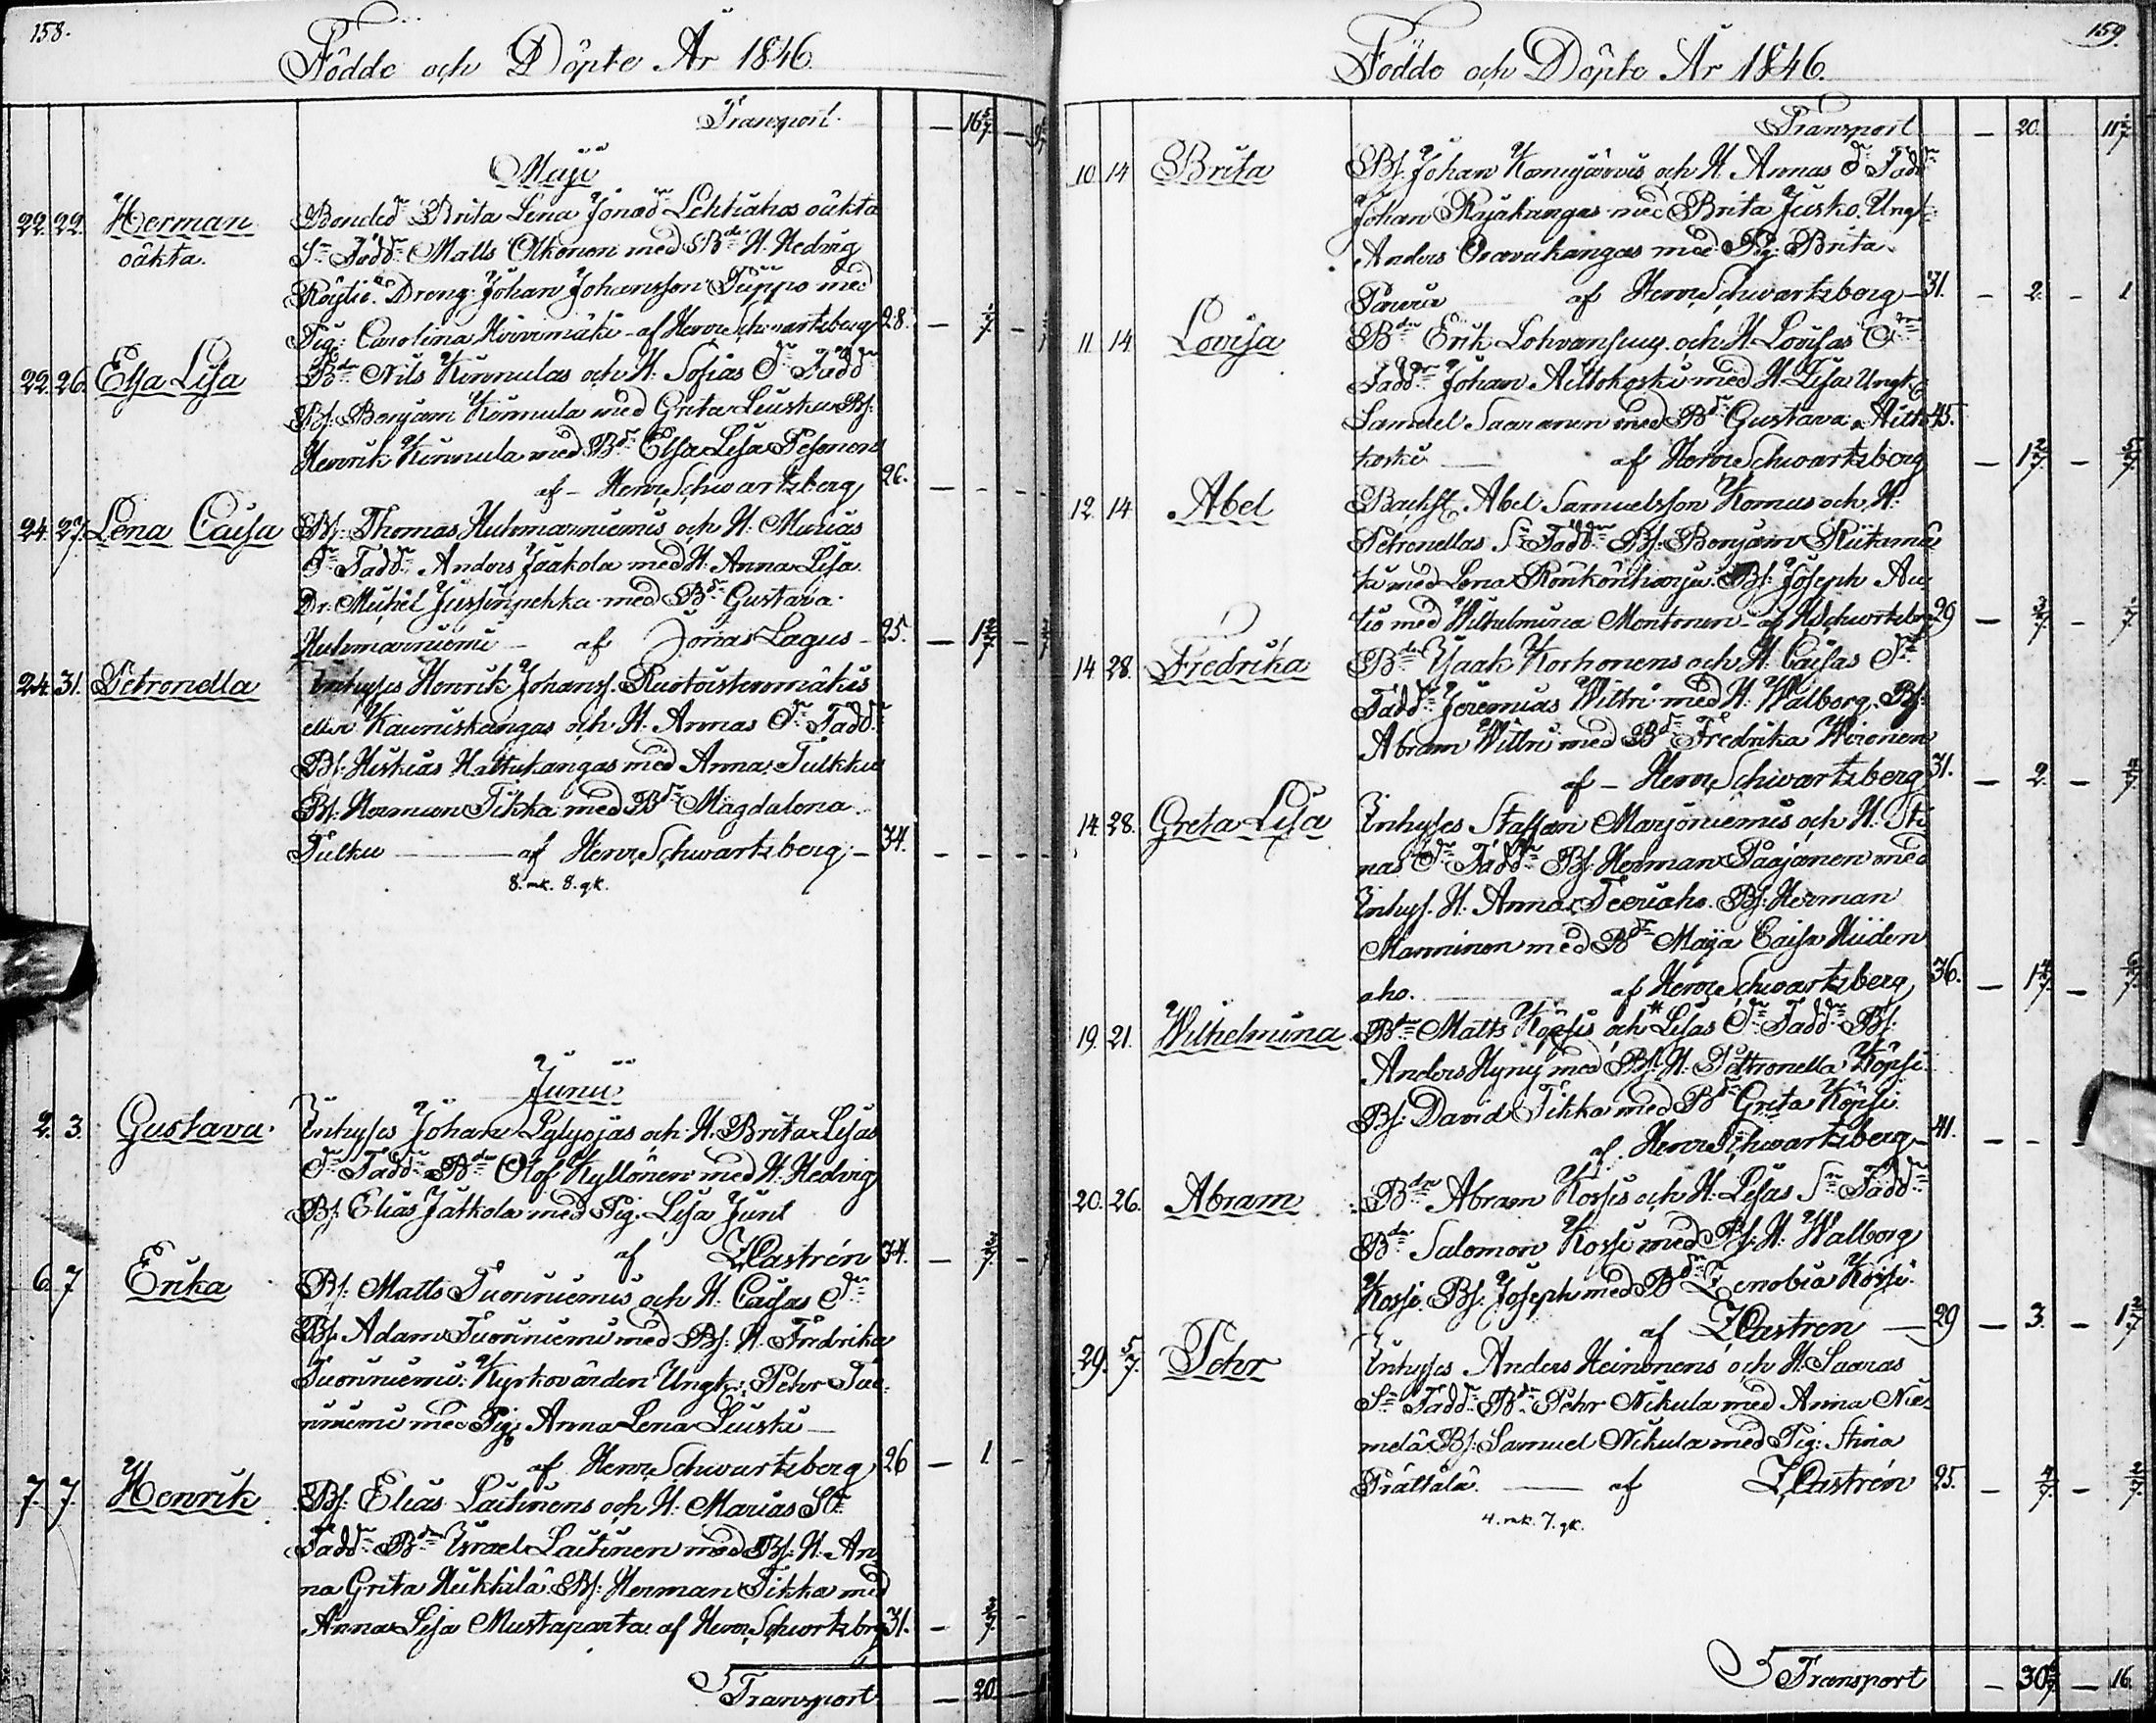 158.
Födde och Döpte År 1846.
Transport. — 16 5/7 —
Maji
22. 22. Herman Bonded:r Brita Lena Jonæd:r Lehtiahos oäkta
oäkta. S:n Fadd:r Matts Olkonen med B:de H. Hedvig
Röytiö. Dreng: Johan Johansson Tuppo med
Pig: Carolina Hirvimäki - af Henr Schwartzberg 28. —
22. 26. Elsa Lisa B:dn Nils Kinnulas och H. Sofias D:r Fadd:r
Bs: Benjam Kinnula med Greta Leuska Bs:
Henrik Kinnula med B:dr Elsa Lisa Pesonen
af - Henr Schwartzberg 26. — - -
24. 27. Lena Caisa Bs: Thomas Huhmarniemis och H. Marias
D:r Fadd:r Anders Jaakola med H. Anna Lisa.
Dr: Michel Jussinpekka med B:dr Gustava
Huhmarniemi — af Jonas Lagus - 25. — 1 2/7 —
24. 31. Petronella Inhyses Henrik Johanss. Ruotoistenmäkis
eller Kauniskangas och H. Annas D:r Fadd:r
Bs: Hiskias Hattukangas med Anna Tulkku
Bs: Herman Tikka med B:dr Magdalena
Tulku ——— af Henr Schwartzberg — 34. — — —
8. mk. 8. qk.
Junii
2. 3. Gustava. Inhyses Johan Lylyojas och H. Brita Lisas
D:r Fadd:r B:dn Olof Kyllönen med H. Hedvig
Bs: Elias Jatkola med Pig: Lisa Junt
af Z Castrén 34. —
6. 7 Erika Bs: Matts Tuorniemis och H. Caisas D:r
Bs: Adam Tuorniemi med Bs: H. Fredrika
Tuorniemi: Kyrkovärden Ungk: Pehr Tuo:
niniemi med Pig: Anna Lena Leuska —
af Henr Schwartzberg 26 — 1 -
7. 7. Henrik Bs: Elias Laitinens och H. Marias S:n
Fadd:r B:dn Israel Laitinen med Bs: H. An
na Greta Heikkilä. Bs: Herman Tikka med
Anna Lisa Mustaparta af Henr Schwrtzbrg 31. —
Transport — 20. —
159.
Födde och Döpte År 1846.
Transport — 20. 11 2/7
10. 14 Brita Bs. Johan Kamijärvis och H. Annas D:r Fadd:r
Johan Rajakangas med Brita Jusko. Ungk:
Anders Oravakangas med Pig: Brita
af Henr Schwartzberg — 31. — 2. — 1
11 14. Lovisa B:dn Erik Lohvansuus och H. Lovisas D:r
Fadd:r Johan Aittokoski med H. Lisa Ungk:
Samuel Saaranen med B:dr Gustava Aitto 45.
koski — af Henr Schwartzberg — 1 2/7 — 5/7
12. 14 Abel Backst. Abel Samuelsson Komus och H:
Petronellas S:n Fadd:r Bs: Benjam Riitama
ki med Lena Rönkönharju. Bs: Joseph Au
tio med Wilhelmina Montonen - af H Schwrtzbrg 29 — 3/7 —
14. 28. Fredrika B:dn Isaak Korhonens och H. Caisas D:r
Fadd:r Jeremias Wittri med H. Walborg. Bs:
Abram Wittri med B:dr Fredrika Wironen
af — Henr Schwartzberg 31. — 2. — 4/7
14. 28. Greta Lisa Inhyses Staffan Marjoniemis och H. Sti
nas D:r Fadd:r Bs: Herman Paajanen med
Inhys. H. Anna Teeriaho. Bs: Herman
Manninen med B:dr Maja Caisa Hiiden
aho. — af Henr Schwartzberg 36. — 1 4/7 — 6/7
19. 21. Wilhelmina B:dn Matts Köpsis och* Lisas D:r Fadd:r Bs:
Anders Hyny med Bs: H. Pettronella Köpsi.
Bs: David Tikka med B:dr Greta Köpsi.
af. Henr Schwartzberg — 41. — - -
20. 26. Abram B:dn Abram Kossis och H. Lisas S:n Fadd:r
B:dn Salomon Kossi med Bs: H. Walborg
Kossi. Bs: Joseph med B:dr Zenobia Kossi.
af Z Castren — 29 — 3. — 1 2/7
29. 5/7. Pehr Inhyses Anders Heinonens och H. Saaras
S:n Fadd:r B:dn Pehr Nikula med Anna Nie
melä. Bs: Samuel Nikula med Pig: Stina
Prättälä. — af Z Castrén 25. — 4/7. — 2/7
4. mk. 7. qk.
Transport — 30 — 16.